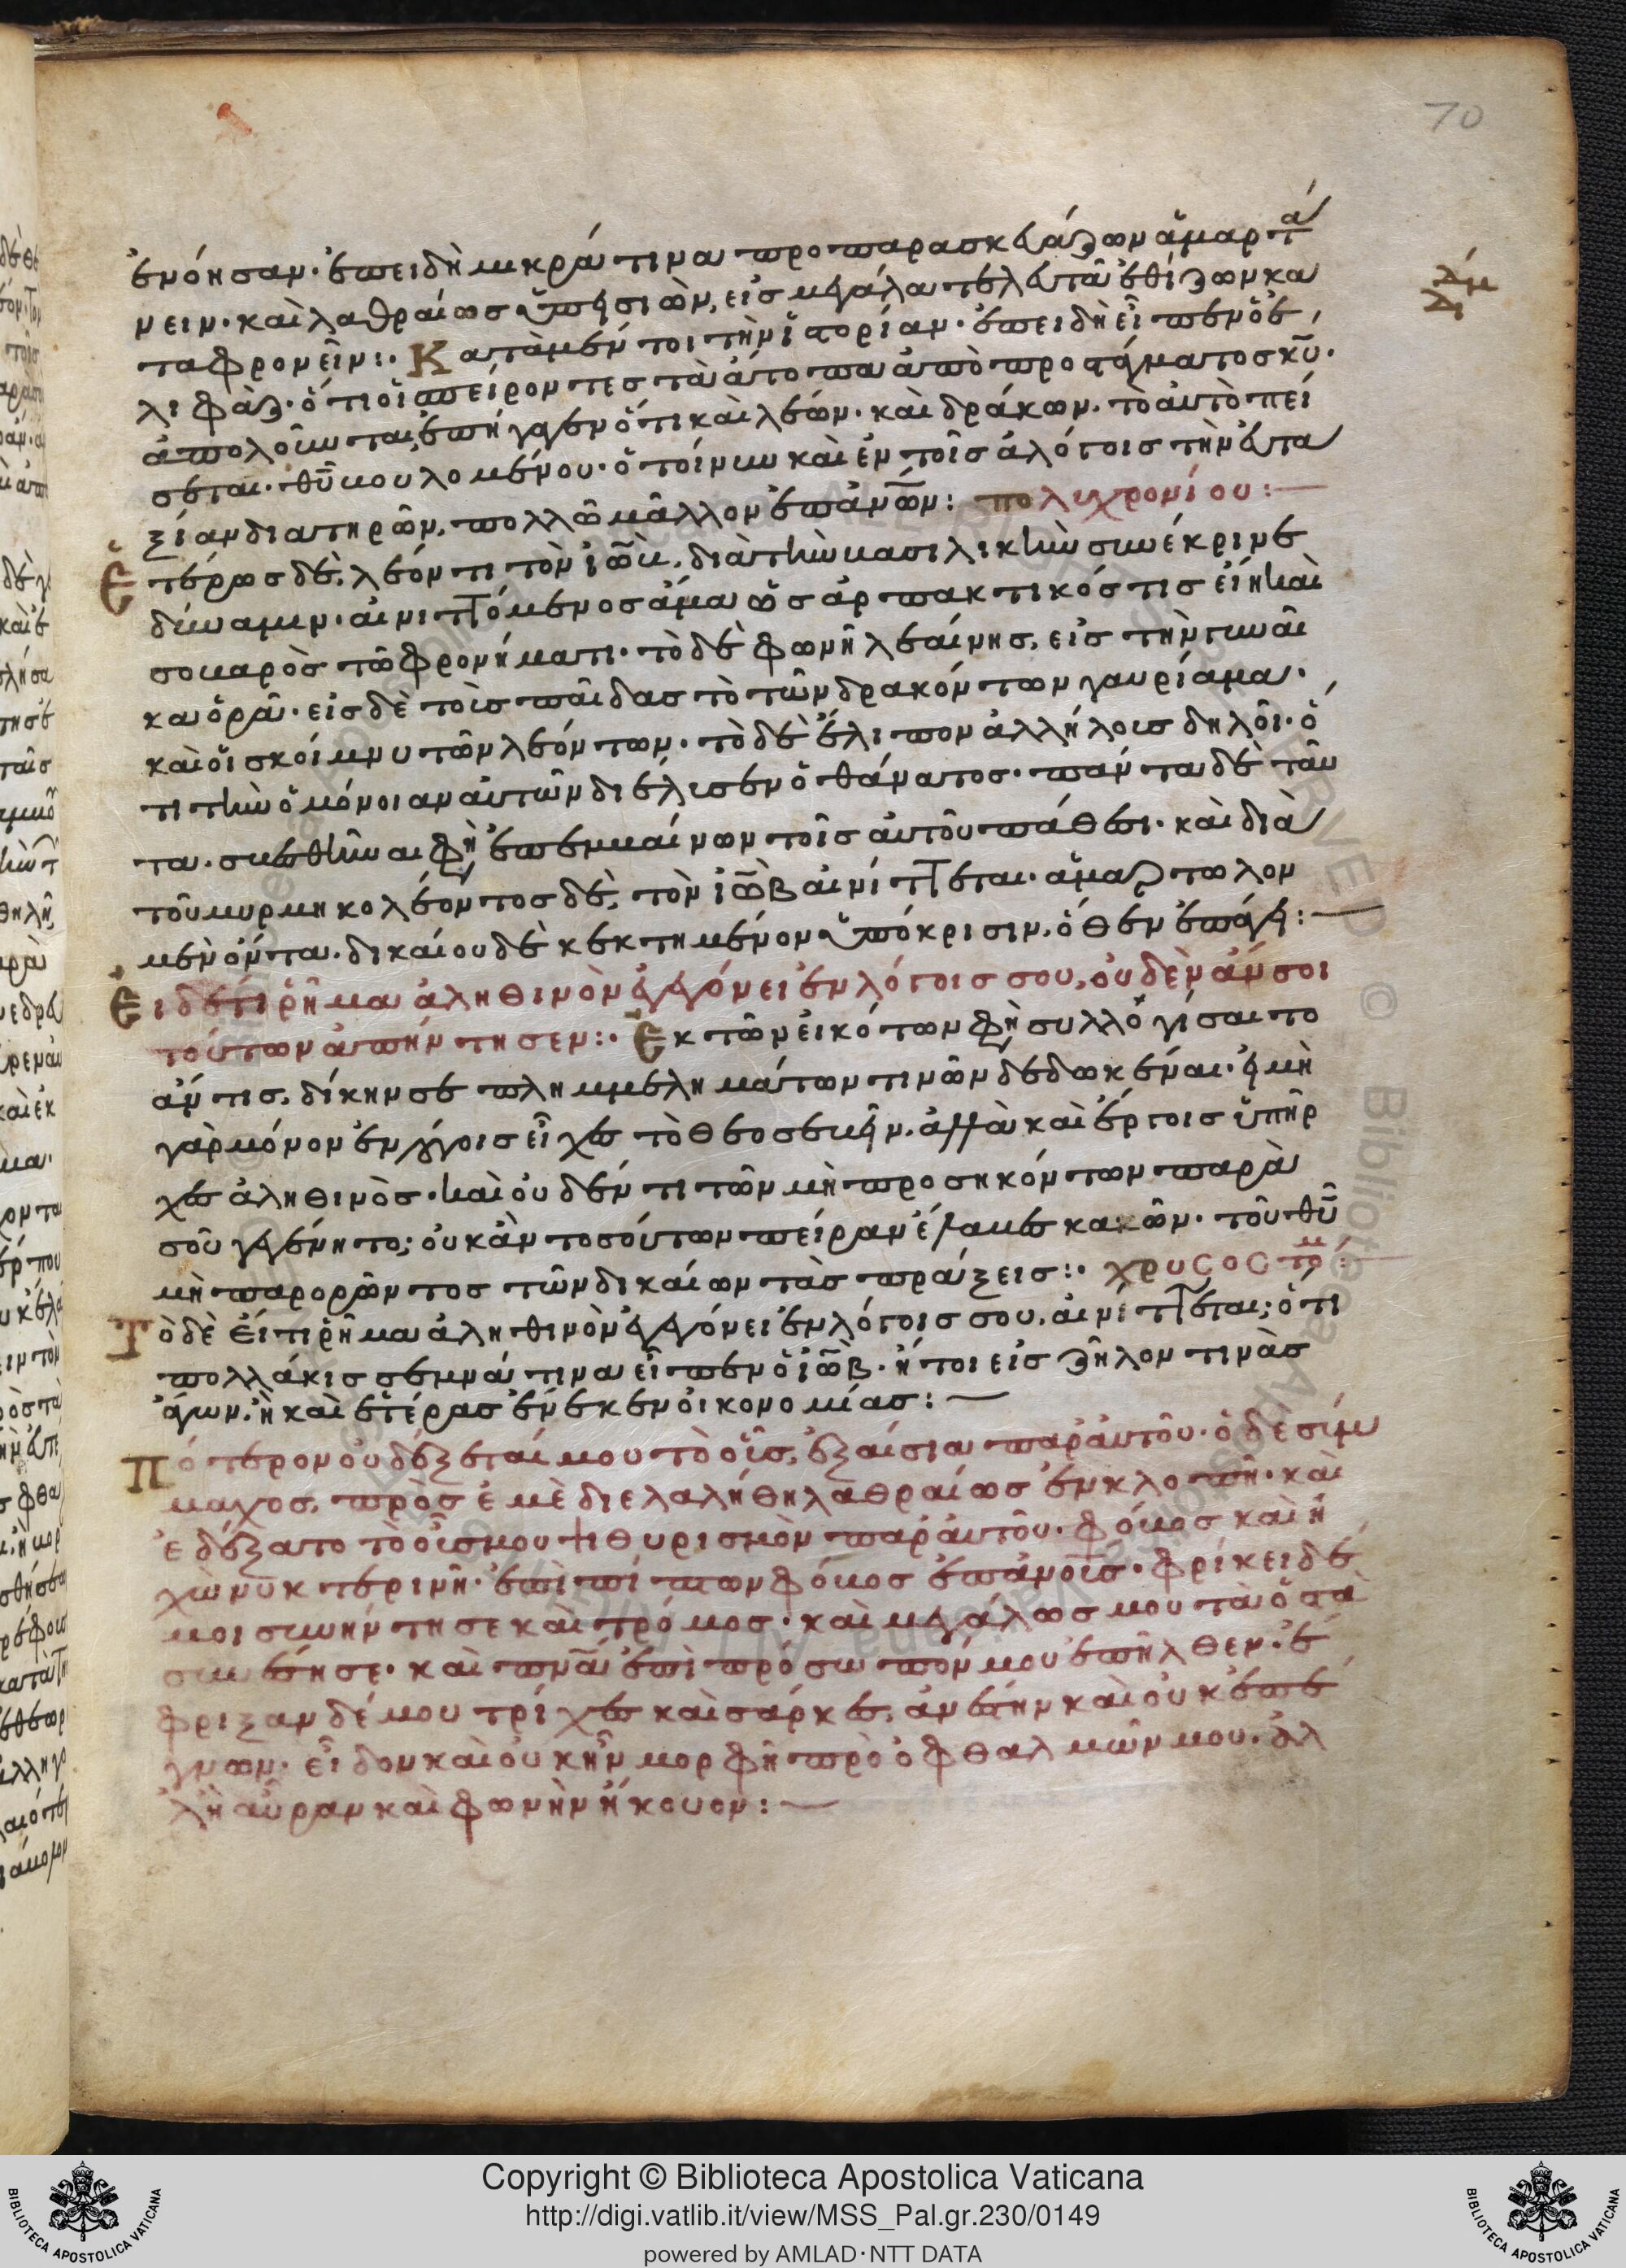 70
ἐνόησαν· ἐπειδὴ μικρά τινα προπαρασκευάζων ἁμαρτά
νειν· καὶ λαθραίως ὑπεισιὼν, εἰς μεγάλα τελευτᾶ ἐθίζων κα
ταφρονεῖν:· Κατὰ μέν τοι τὴν ἱστορίαν· ἐπειδὴ εἶπεν ὁ ἐ
λιφὰζ· ὅτι οἱ σπείροντες τὰ ἄτοπα ἀπὸ προστάγματος κυ·
ἀπολοῦνται, ἐπήγαγεν ὅτι καὶ λέων· καὶ δράκων. τὸ αὐτὸ πεί
σεται· θυ βουλομένου· ὁ τοίνυν καὶ ἐν τοῖς ἀλόγοις τὴν εὐτα
ξίαν διατηρῶν, πολλῶ μᾶλλον ἐπ' ἀνῶν: πολυχρονίου:
Ἑτέρως δὲ, λέοντι τὸν ἰὼβ, διὰ τὴν βασιλικὴν συνέκρινε
δύναμιν· αἰνιττόμενος ἅμα ὡς ἁρπακτικός τις εἴη καὶ
σοβαρὸς τῶ φρονήματι· τὸ δὲ φωνὴ λεαίνης, εἰς τὴν γυναῖ
κα ὁρᾶ· εἰς δὲ τοὺς παῖδας τὸ τῶν δρακόντων γαυρίαμα·
καὶ οἱ σκύμνοι τῶν λεόντων· τὸ δὲ ἔλιπον ἀλλήλους δηλοῖ· ὅ
τι τὴν ὁμόνοιαν αὐτῶν διέλυσεν ὁ θάνατος· πάντα δὲ ταῦ
τα· συβῆναι φη ἐπεμβαίνων τοῖς αὐτοῦ πάθεσι· καὶ διὰ
τοῦ μυρμηκολέοντος δὲ, τὸν ἰὼβ αἰνίττεται· ἁμαρτωλον
μὲν ὄντα. δικαίου δὲ κεκτημένον ὑπόκρισιν, ὅθεν ἐπάγει:
Εἰ δέ τι ῥῆμα ἀληθινὸν ἐγεγόνει ἐν λόγοις σου, οὐδὲν ἄν σοι
τούτων ἀπήντησεν:· Ἐκ τῶν εἰκότων φη συλλογίσαιτο
ἄν τις, δίκην σε πλημμελημάτων τινῶν δεδωκέναι· εἰ μὴ
γὰρ μόνον ἐν λόγοις εἶχες τὸ θεοσεβεῖν· ἀλλὰ καὶ ἔργοις ὑπῆρ
χες ἀληθινὸς· καὶ οὐδέν τι τῶν μὴ προσηκόντων παρὰ
σοῦ γεγένητο; οὐκ ἂν τοσούτων πεῖραν ἔλαβες κακῶν· τοῦ θυ
μὴ παρορῶντος τῶν δικαίων τὰς πράξεις:· χρυσοστόμ:
Τὸ δὲ εἴ τι ῥῆμα ἀληθινὸν ἐγεγόνει ἐν λόγοις σου. αἰνίττεται; ὅτι
πολλάκις σεμνά τινα εἶπεν ὁ ἰὼβ· ἤτοι εἰς ζῆλον τινὰς
ἄγων. ἢ καὶ ἑτέρας ἕνεκεν οἰκονομίας:
Πότερον οὐ δέξεταί μου τὸ οὖς, ἐξαίσια παρ' αὐτοῦ· ὁδε σύμ
μαχος, πρὸς ἐμὲ διελαλήθη λαθραίως ἐν κλοπῆ· καὶ
ἐδέξατο τὸ οὖς μου ψιθυρισμὸν παρ' αὐτοῦ· φόβος καὶ ἠ
χὼ νυκτερινῆ· ἐπιπίπτων φόβος ἐπ' ἀνοῖς· φρίκει δέ
μοι συνήντησε καὶ τρόμος· καὶ μεγάλως μου τὰ ὀστᾶ
συνέσησε· καὶ πνα ἐπὶ πρόσωπόν μου ἐπῆλθεν. ἔ
φριξαν δέ μου τρίχες καὶ σάρκες, ἀνέστην καὶ οὐκ ἐπέ
γνων· εἶδον καὶ οὐκ ἦν μορφὴ πρὸ ὀφθαλμῶν μου. ἀλ
λ' ἢ αὖραν καὶ φωνὴν ἤκουον:
Copyright © Biblioteca Apostolica Vaticana
http://digi.vatlib.it/view/MSS_Pal.gr.230/0149
powered by AMLAD·NTT DATA
BIBLIOTECA APOSTOLICA VATICANA
BIBLIOTECA APOSTOLICA VATICANA